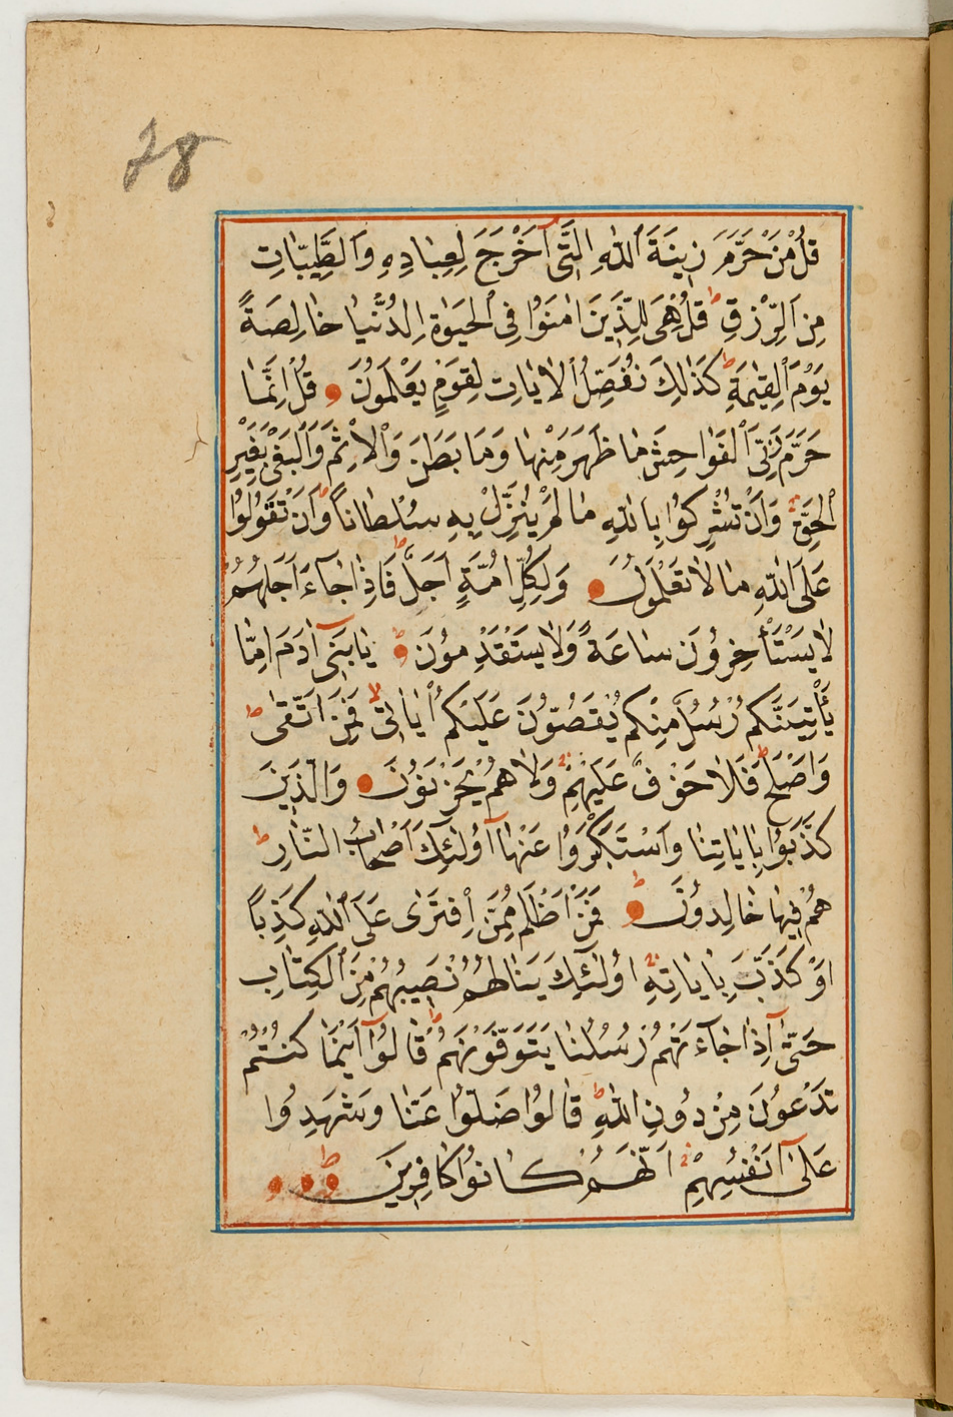 78
قُلْ مَنْ حَرَّمَ زِينَةَ ٱللّٰهِ الَّتِىٓ اَخْرَجَ لِعِبَادِهِ وَالطَّيِّبَاتِ
مِنَ الرِّزْقِ ط قُلْ هِىَ لِلَّذِينَ اٰمَنُوا فِى الْحَيٰوةِ الدُّنْيَا خَالِصَةً
يَوْمَ الْقِيٰمَةِ ط كَذٰلِكَ نُفَصِّلُ الْاٰيَاتِ لِقَوْمٍ يَعْلَمُونَ قُلْ اِنَّمَا
حَرَّمَ رَبِّىَ الْفَوَاحِشَ مَا ظَهَرَ مِنْهَا وَمَا بَطَنَ وَالْاِثْمَ وَالْبَغْىَ بِغَيْرِ
الْحَقِّ وَاَنْ تُشْرِكُوا بِاللّٰهِ مَا لَمْ يُنَزِّلْ بِهِ سُلْطَانًا وَاَنْ تَقُولُوا
عَلَى اللّٰهِ مَا لَا تَعْلَمُونَ وَلِكُلِّ اُمَّةٍ اَجَلٌ ط فَاِذَا جَآءَ اَجَلُهُمْ
لَا يَسْتَأْخِرُونَ سَاعَةً وَلَا يَسْتَقْدِمُونَ ط يَا بَنِىٓ اٰدَمَ اِمَّا
يَأْتِيَنَّكُمْ رُسُلٌ مِنْكُمْ يَقُصُّونَ عَلَيْكُمْ اٰيَاتِى لا فَمَنِ اتَّقٰى ط
وَاَصْلَحَ ط فَلَا خَوْفٌ عَلَيْهِمْ وَلَا هُمْ يَحْزَنُونَ وَالَّذِينَ
كَذَّبُوا بِاٰيَاتِنَا وَاسْتَكْبَرُوا عَنْهَآ اُولٰٓئِكَ اَصْحَابُ النَّارِ ط
هُمْ فِيهَا خَالِدُونَ ط فَمَنْ اَظْلَمُ مِمَّنِ افْتَرٰى عَلَى اللّٰهِ كَذِبًا
اَوْ كَذَّبَ بِاٰيَاتِهِ اُولٰٓئِكَ يَنَالُهُمْ نَصِيبُهُمْ مِنَ الْكِتَابِ
حَتّٰىٓ اِذَا جَآءَتْهُمْ رُسُلُنَا يَتَوَفَّوْنَهُمْ ط قَالُوٓا اَيْنَمَا كُنْتُمْ
تَدْعُونَ مِنْ دُونِ اللّٰهِ ط قَالُوا ضَلُّوا عَنَّا وَشَهِدُوا
عَلٰىٓ اَنْفُسِهِمْ اَنَّهُمْ كَانُوا كَافِرِينَ ط